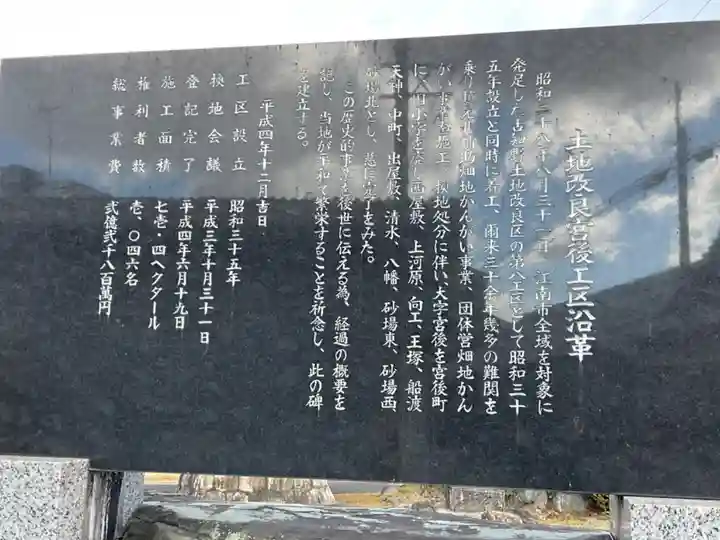 土地改良宮後工区沿革
昭和二十八年八月三十一日、江南市全域を対象に
発足した古知野土地改良区の第八工区として昭和三十
五年設立と同時に着工、爾来三十余年幾多の難関を
乗り 畑地かんがい事業、団体営畑地かん
がい事業 施工 換地処分に伴い大字宮後を宮後町
に、旧小字を 西屋敷、上河原、向工、王塚、船渡
天神、中町、出屋敷、清水、八幡、砂場東、砂場西、
砂場北とし、茲に完了をみた。
この歴史的事業を後世に伝える為、経過の概要を
記し、当地が平和で繁栄することを祈念し、此の碑
を建立する。
平成四年十二月吉日
工区設立 昭和三十五年
換地会議 平成三年十月三十一日
登記完了 平成四年六月十九日
施工面積 七壱・四ヘクタール
権利者数 壱、〇四六名
総事業費 弐億弐千八百萬円